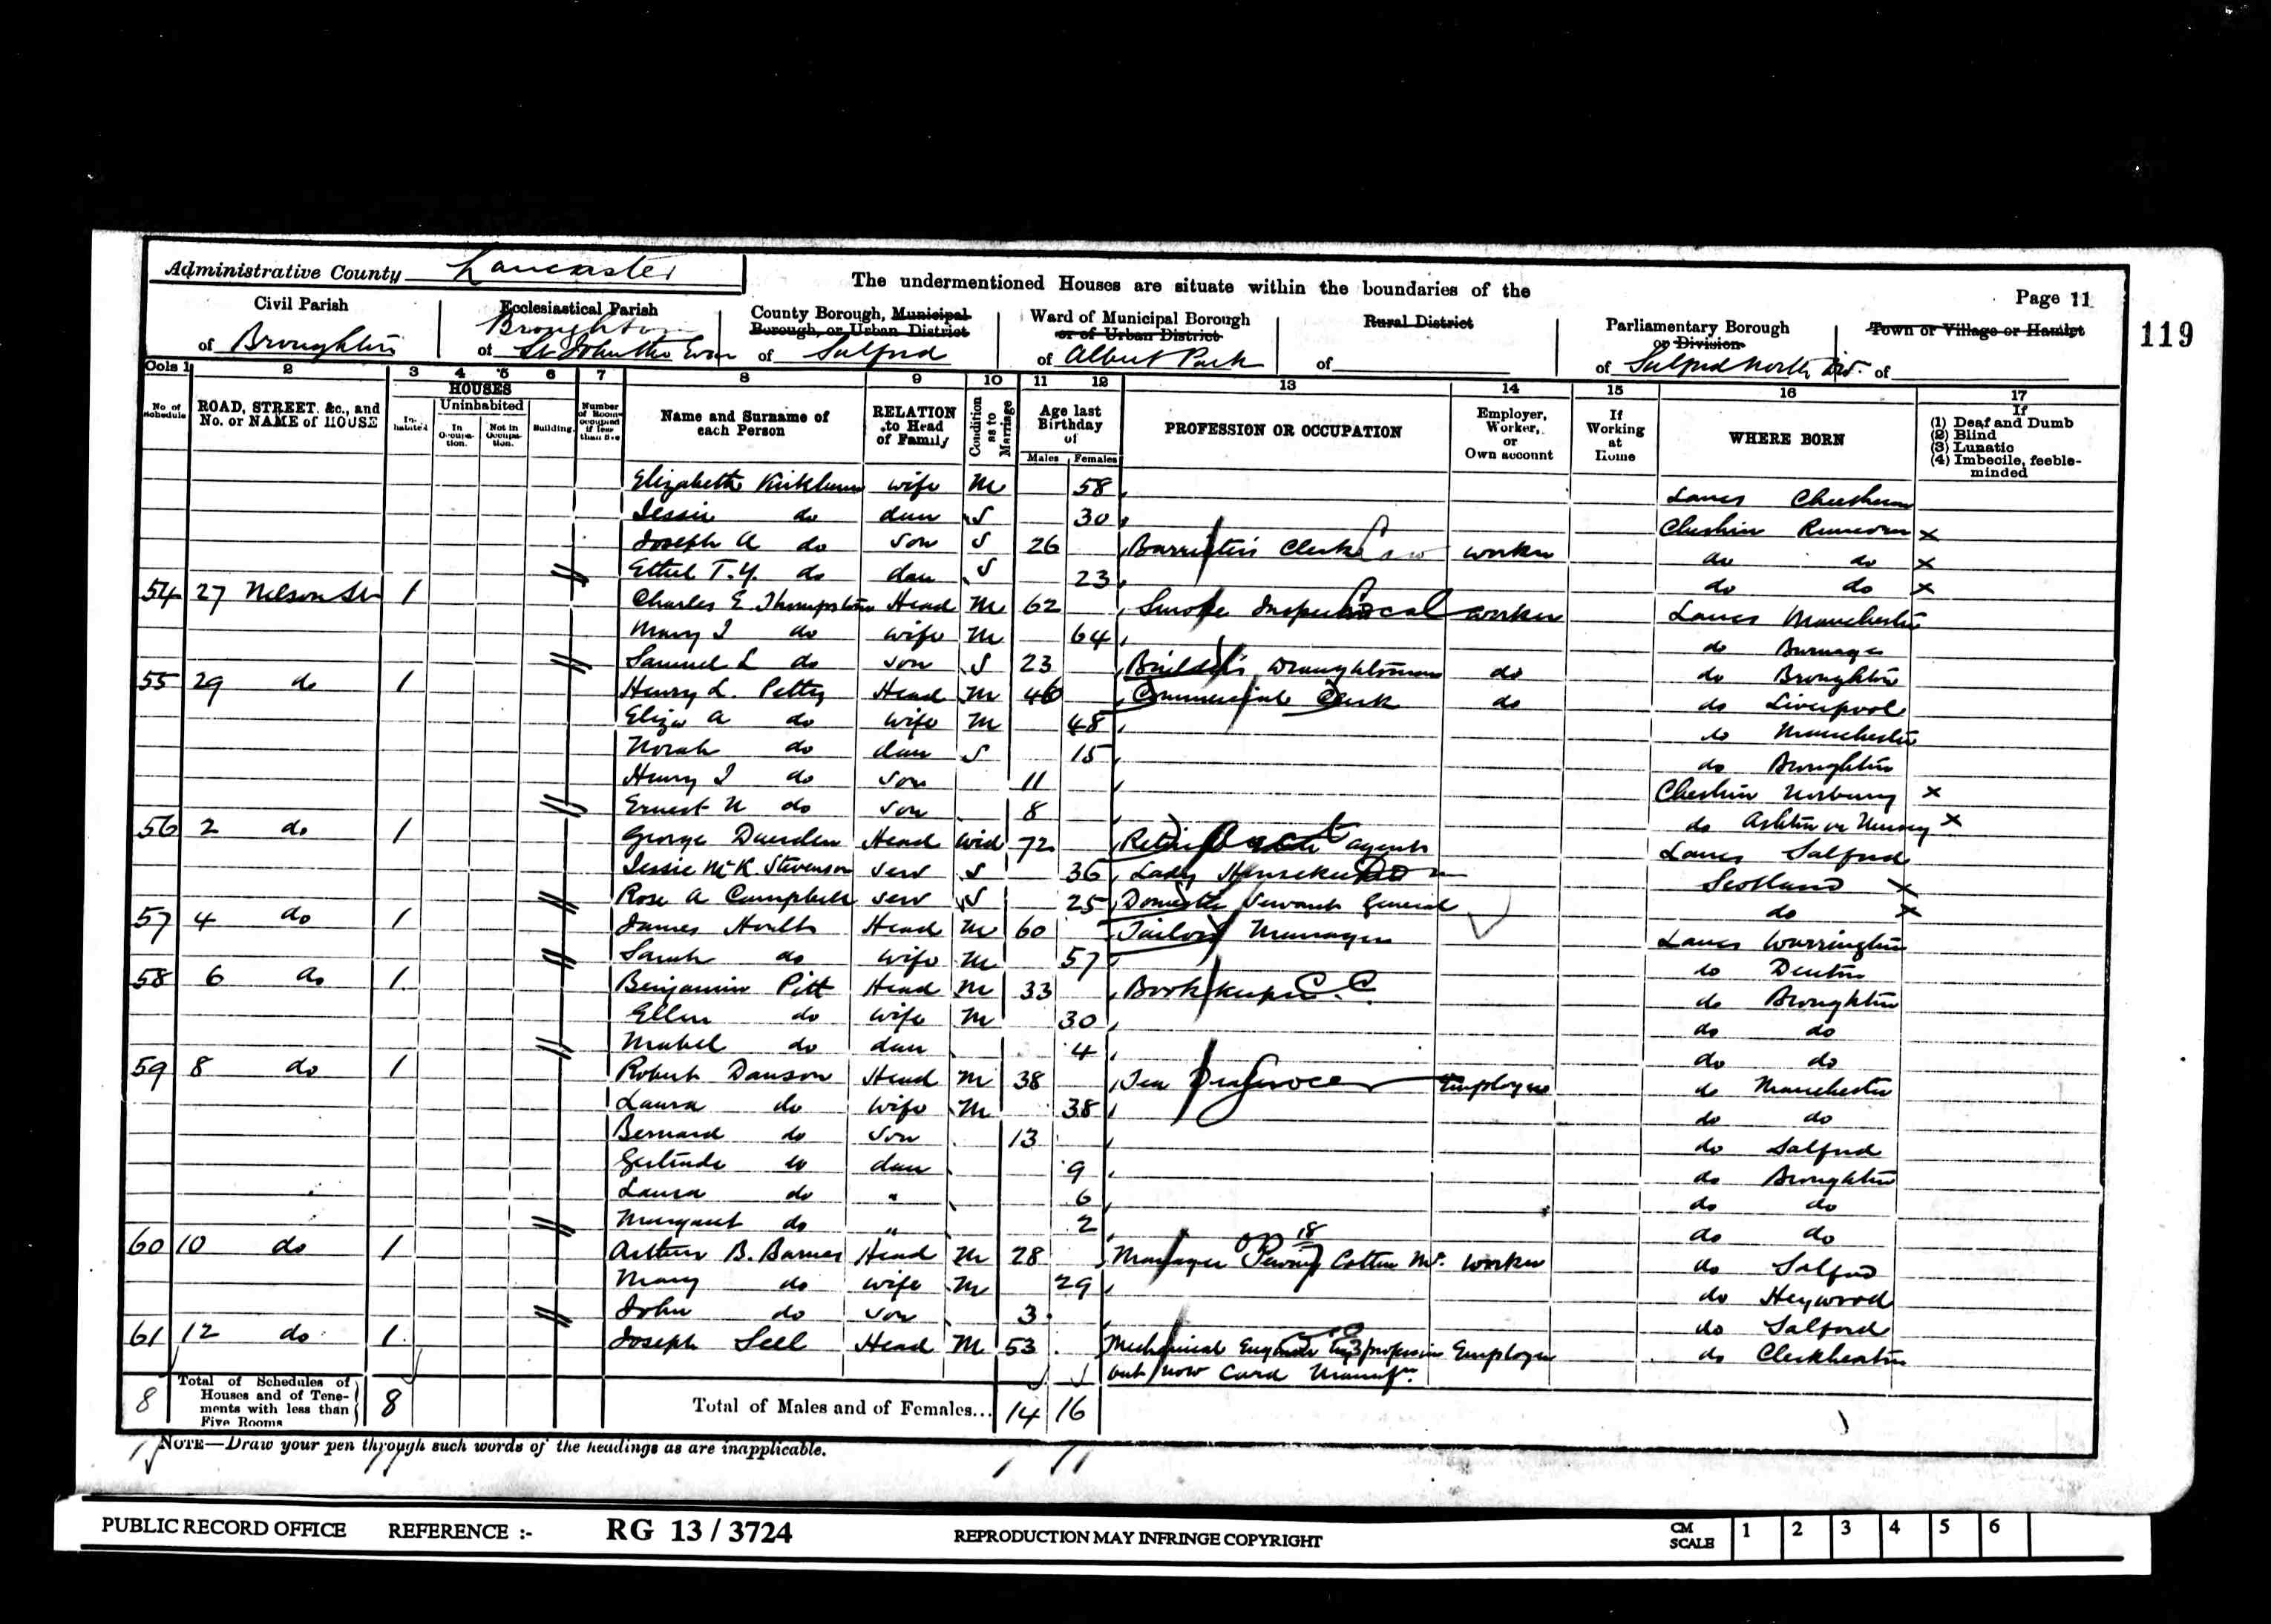 Administrative County Lancaster
The undermentioned Houses are situate within the boundaries of the
Page 11
119
Civil Parish of Broughton
Ecclesiastical Parish of Broughton St John the Evan
County Borough, Municipal Borough, or Urban District of Salford
Ward of Municipal Borough or of Urban District of Albert Park
Rural District of
Parliamentary Borough or Division of Salford North Div.
Town or Village or Hamlet of
Cols 1 2 3 4 5 6 7 8 9 10 11 12 13 14 15 16 17
No of Schedule
ROAD, STREET, &c., and No. or NAME of HOUSE
HOUSES
Inhabited
Uninhabited
In Occupation.
Not in Occupation.
Building.
Number of Rooms occupied if less than five
Name and Surname of each Person
RELATION to Head of Family
Condition as to Marriage
Age last Birthday of
Males Females
PROFESSION OR OCCUPATION
Employer, Worker, or Own account
If Working at Home
WHERE BORN
If
(1) Deaf and Dumb
(2) Blind
(3) Lunatic
(4) Imbecile, feeble-minded
Elizabeth wife M 58 Lancs
Jessie do dau S 30 Cheshire Runcorn x
Joseph A do son S 26 Barrister's Clerk Law worker do do x
Ethel T.Y. do dau S 23 do do x
54 27 Nelson St 1 Charles E Head M 62 Smoke worker Lancs Manchester
Mary I do wife M 64 do Burnage
Samuel L do son S 23 Builder's Draughtsman do do Broughton
55 29 do 1 Henry L. Petty Head M 46 Commercial Clerk do do Liverpool
Eliza A do wife M 48 do Manchester
Norah do dau S 15 do Broughton
Henry I do son 11 Cheshire Norbury x
Ernest N do son 8 do Ashton on Mersey x
56 2 do 1 George Duerden Head Wid 72 agent Lancs Salford
Jessie McK. Stevenson serv S 36 Lady Scotland x
Rose A Campbell serv S 25 Domestic Servant General do x
57 4 do 1 James Head M 60 Tailor's Manager Lancs Warrington
Sarah do wife M 57 do Denton
58 6 do 1 Benjamin Pitt Head M 33 Bookkeeper C.C. do Broughton
Ellen do wife M 30 do do
Mabel do dau 4 do do
59 8 do 1 Robert Dawson Head M 38 Tea Grocer Employer do Manchester
Laura do wife M 38 do do
Bernard do son 13 do Salford
Gertrude do dau 9 do Broughton
Laura do " 6 do do
Margaret do " 2 do do
60 10 do 1 Arthur B. Barnes Head M 28 Manager Sewing Cotton Mr. worker do Salford
18
Mary do wife M 29 do Heywood
John do son 3 do Salford
61 12 do 1 Joseph Sell Head M 53 Mechanical profession Employer do Cleckheaton
but now Card Manufr.
8 Total of Schedules of Houses and of Tenements with less than Five Rooms 8
Total of Males and of Females... 14 16
NOTE—Draw your pen through such words of the headings as are inapplicable.
PUBLIC RECORD OFFICE REFERENCE :- RG 13 / 3724 REPRODUCTION MAY INFRINGE COPYRIGHT CM SCALE 1 2 3 4 5 6